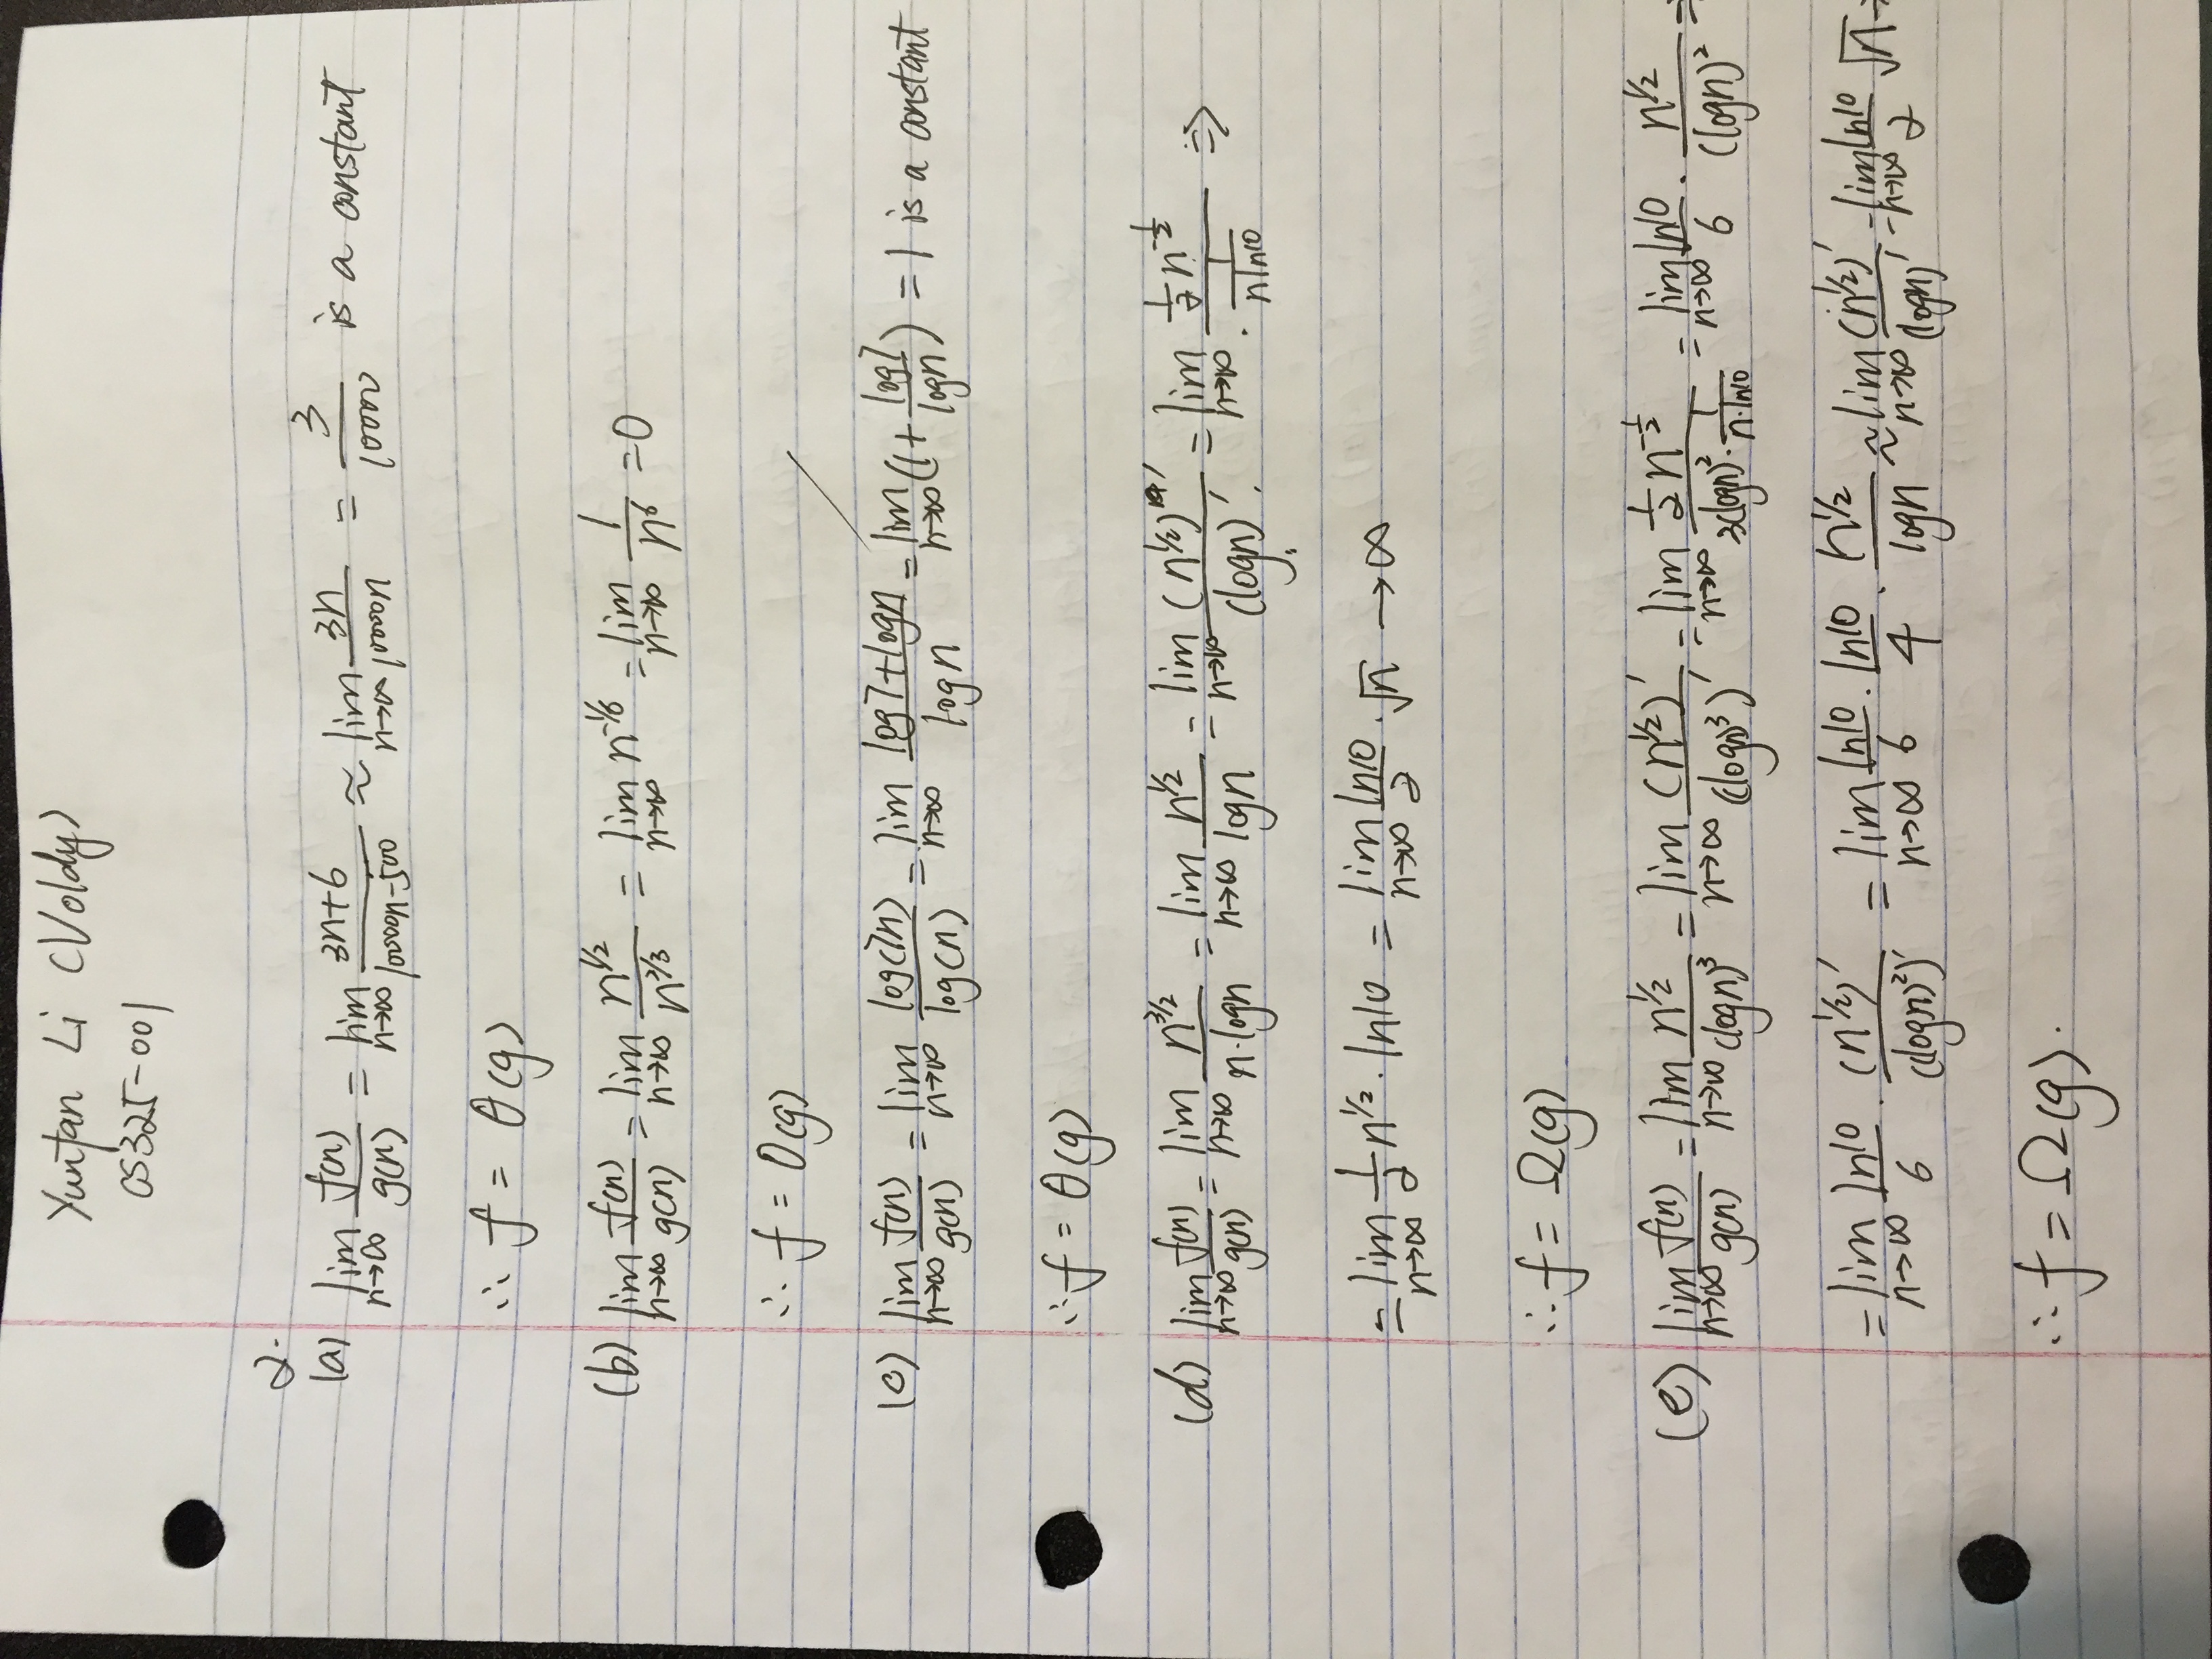 Yuntan Li (Voldy)
CS325-001
2.
(a) lim n→∞ f(n)/g(n) = lim n→∞ (3n+6)/(10000n-500) ≈ lim n→∞ 3n/10000n = 3/10000 is a constant
∴ f = θ(g)
(b) lim n→∞ f(n)/g(n) = lim n→∞ n^(1/2)/n^(2/3) = lim n→∞ n^(-1/6) = lim n→∞ 1/n^6 = 0
∴ f = O(g)
(c) lim n→∞ f(n)/g(n) = lim n→∞ log(7n)/log(n) = lim n→∞ (log7+logn)/logn = lim n→∞ (1+log7/logn) = 1 is a constant
∴ f = θ(g)
(d) lim n→∞ f(n)/g(n) = lim n→∞ n^(3/2)/(n·logn) = lim n→∞ n^(1/2)/logn = lim n→∞ (n^(1/2))'/(logn)' = lim n→∞ (1/2 n^(-1/2))/(1/(nln10)) ⇒
= lim n→∞ 1/2 n^(1/2) · ln10 = lim n→∞ ln10/2 · √n → ∞
∴ f = Ω(g)
(e) lim n→∞ f(n)/g(n) = lim n→∞ n^(1/2)/(logn)^3 = lim n→∞ (n^(1/2))'/((logn)^3)' = lim n→∞ (1/2 n^(-1/2))/(3(logn)^2 · 1/(n·ln10)) = lim n→∞ ln10/6 · n^(1/2)/(logn)^2 ⇒
= lim n→∞ ln10/6 · (n^(1/2))'/((logn)^2)' = lim n→∞ ln10/6 · ln10/4 · n^(1/2)/logn ≈ lim n→∞ (n^(1/2))'/(logn)' = lim n→∞ ln10/2 √n →
∴ f = Ω(g).